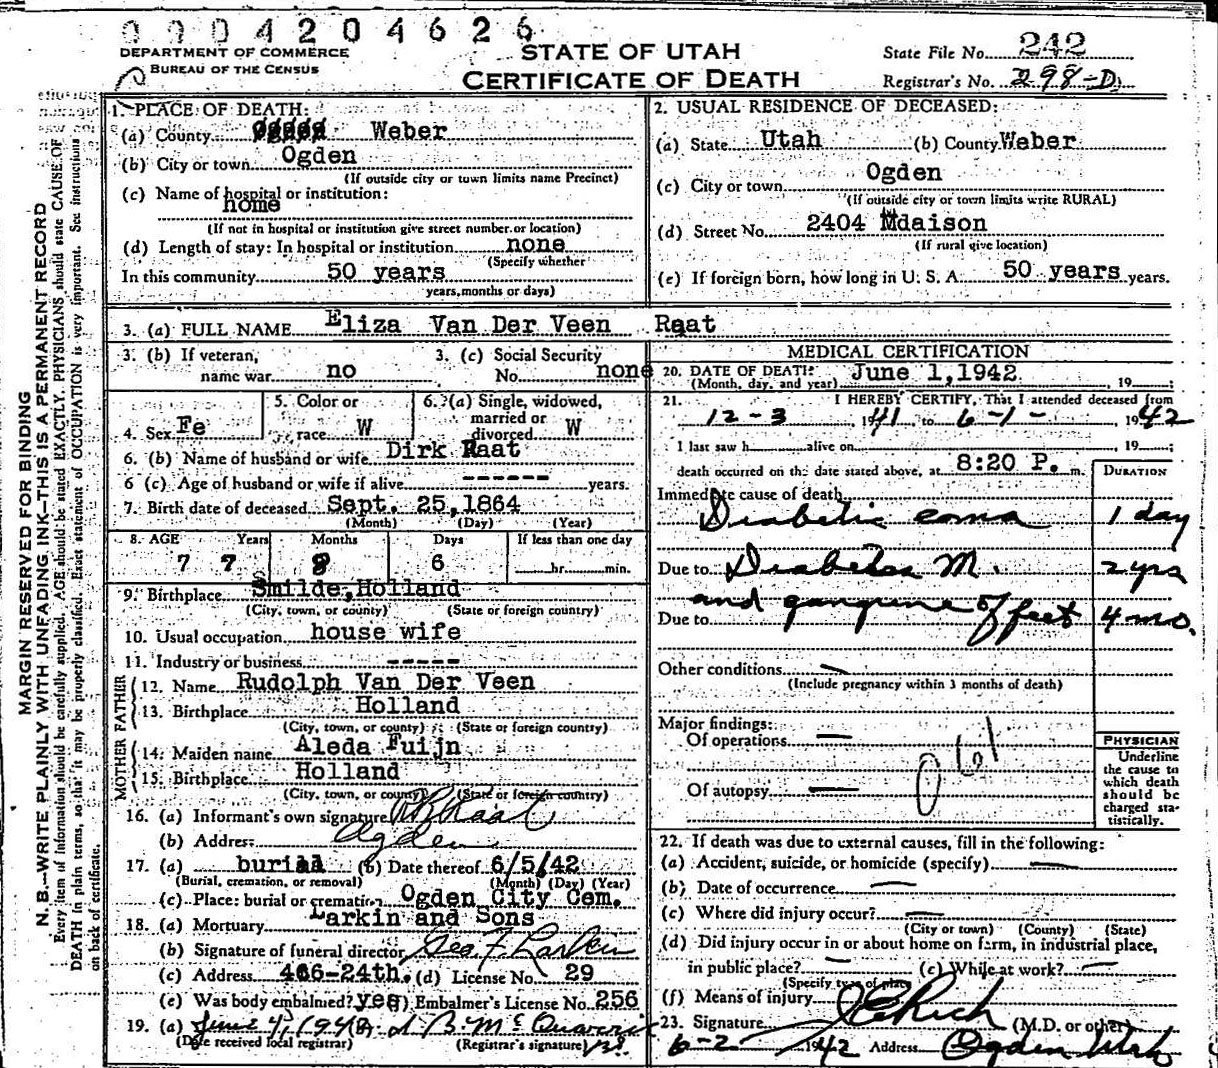 0004204626
DEPARTMENT OF COMMERCE
BUREAU OF THE CENSUS
STATE OF UTAH
CERTIFICATE OF DEATH
State File No. 242
Registrar's No. 298-D
MARGIN RESERVED FOR BINDING
N. B.—WRITE PLAINLY WITH UNFADING INK—THIS IS A PERMANENT RECORD
Every item of information should be carefully supplied. AGE should be stated EXACTLY. PHYSICIANS should state CAUSE OF
DEATH in plain terms, so that it may be properly classified. Exact statement of OCCUPATION is very important. See instructions
on back of certificate.
1. PLACE OF DEATH:
(a) County Weber
(b) City or town Ogden
(If outside city or town limits name Precinct)
(c) Name of hospital or institution:
home
(If not in hospital or institution give street number or location)
(d) Length of stay: In hospital or institution none
(Specify whether
In this community 50 years
years, months or days)
2. USUAL RESIDENCE OF DECEASED:
(a) State Utah (b) County Weber
(c) City or town Ogden
(If outside city or town limits write RURAL)
(d) Street No. 2404 Mdaison
(If rural give location)
(e) If foreign born, how long in U. S. A. 50 years years.
3. (a) FULL NAME Eliza Van Der Veen Raat
3. (b) If veteran, name war no
3. (c) Social Security No. none
4. Sex Fe
5. Color or race W
6. (a) Single, widowed, married or divorced W
6. (b) Name of husband or wife Dirk Raat
6 (c) Age of husband or wife if alive ------ years.
7. Birth date of deceased Sept. 25,1864
(Month) (Day) (Year)
8. AGE Years Months Days If less than one day
77 8 6 hr. min.
9. Birthplace Smilde, Holland
(City, town, or county) (State or foreign country)
10. Usual occupation house wife
11. Industry or business -----
FATHER
12. Name Rudolph Van Der Veen
13. Birthplace Holland
(City, town, or county) (State or foreign country)
MOTHER
14. Maiden name Aleda Fuijn
15. Birthplace Holland
(City, town, or county) (State or foreign country)
16. (a) Informant's own signature Raat
(b) Address Ogden
17. (a) burial (b) Date thereof 6/5/42
(Burial, cremation, or removal) (Month) (Day) (Year)
(c) Place: burial or cremation Ogden City Cem.
18. (a) Mortuary Larkin and Sons
(b) Signature of funeral director Geo F. Larkin
(c) Address 466-24th. (d) License No. 29
(e) Was body embalmed? yes (f) Embalmer's License No. 256
19. (a) June 4, 1942
(Date received local registrar) (Registrar's signature)
MEDICAL CERTIFICATION
20. DATE OF DEATH: June 1,1942 , 19
(Month, day, and year)
21. I HEREBY CERTIFY, That I attended deceased from
12-3 , 1941 to 6-1- , 1942
I last saw h alive on , 19 ;
death occurred on the date stated above, at 8:20 P. m.
DURATION
Immediate cause of death
Diabetic coma 1 day
Due to Diabetes M. 2 yrs
and gangrene of feet 4 mo.
Due to
Other conditions —
(Include pregnancy within 3 months of death)
Major findings:
Of operations —
061
Of autopsy —
PHYSICIAN
Underline
the cause to
which death
should be
charged sta-
tistically.
22. If death was due to external causes, fill in the following:
(a) Accident, suicide, or homicide (specify) —
(b) Date of occurrence —
(c) Where did injury occur? —
(City or town) (County) (State)
(d) Did injury occur in or about home on farm, in industrial place,
in public place? — (e) While at work? —
(Specify type of place)
(f) Means of injury
23. Signature Rich (M.D. or other)
6-2 1942 Address Ogden Utah